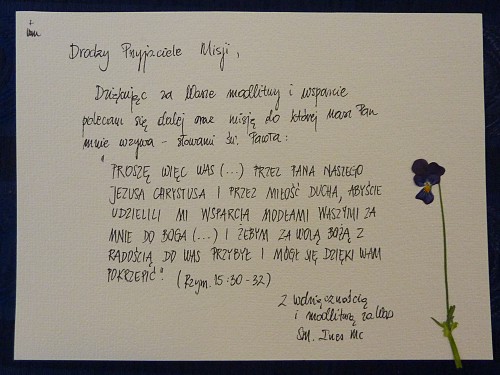 +
Drodzy Przyjaciele Misji,
Dziękując za Wasze modlitwy i wsparcie
polecam się dalej oraz misję do której nasz Pan
mnie wzywa - słowami św. Pawła:
"PROSZĘ WIĘC WAS (...) PRZEZ PANA NASZEGO
JEZUSA CHRYSTUSA I PRZEZ MIŁOŚĆ DUCHA, ABYŚCIE
UDZIELILI MI WSPARCIA MODŁAMI WASZYMI ZA
MNIE DO BOGA (...) I ŻEBYM ZA WOLĄ BOŻĄ Z
RADOŚCIĄ DO WAS PRZYBYŁ I MÓGŁ SIĘ DZIĘKI WAM
POKRZEPIĆ". (Rzym. 15:30-32)
Z wdzięcznością
i modlitwą za Was
SM. Ines MC